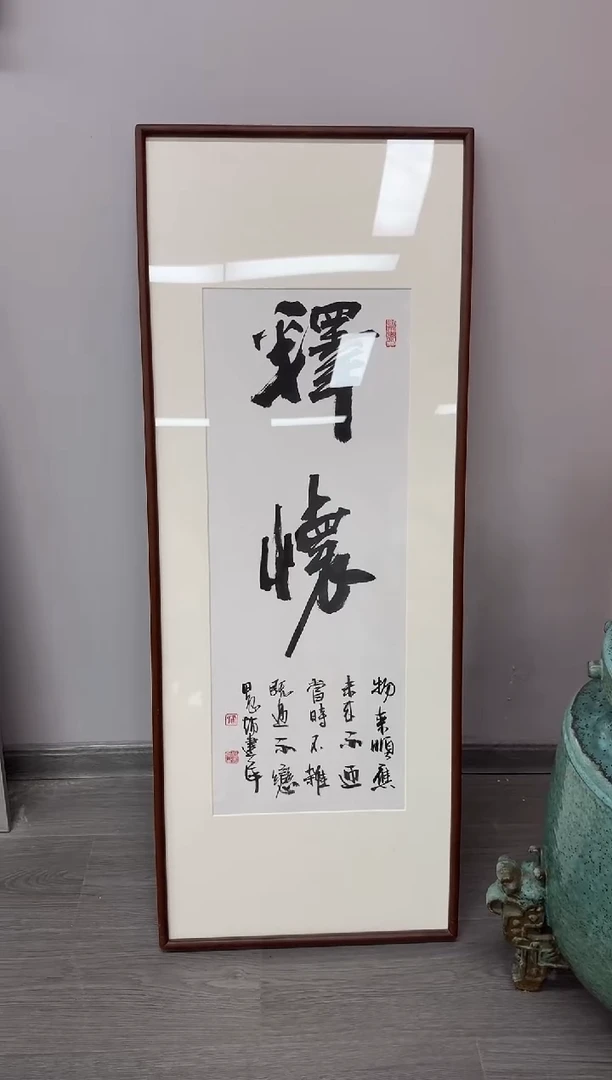 釋懷
物來順應
未來不迎
當時不雜
既過不戀